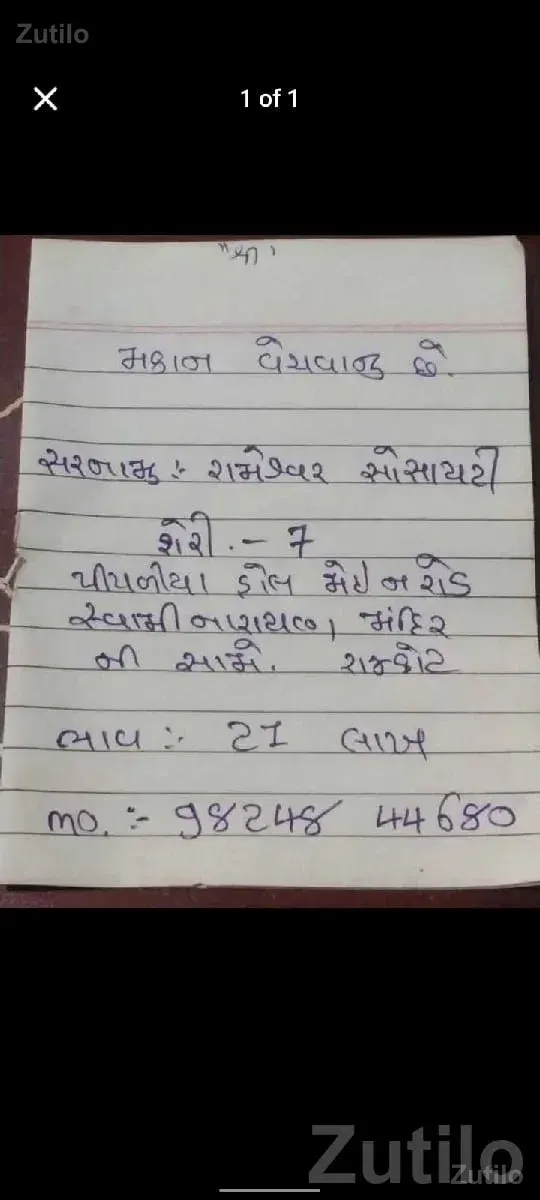 Zutilo
1 of 1
"શ્રી"
મકાન વેચવાનુ છે.
સરનામુ :- રામેશ્વર સોસાયટી
શેરી. - 7
પીપળીયા હોલ મેઇન રોડ
સ્વામીનારાયણ મંદિર
ની સામે. રાજકોટ
ભાવ :- 21 લાખ
mo. :- 98248 44680
Zutilo
Zutilo